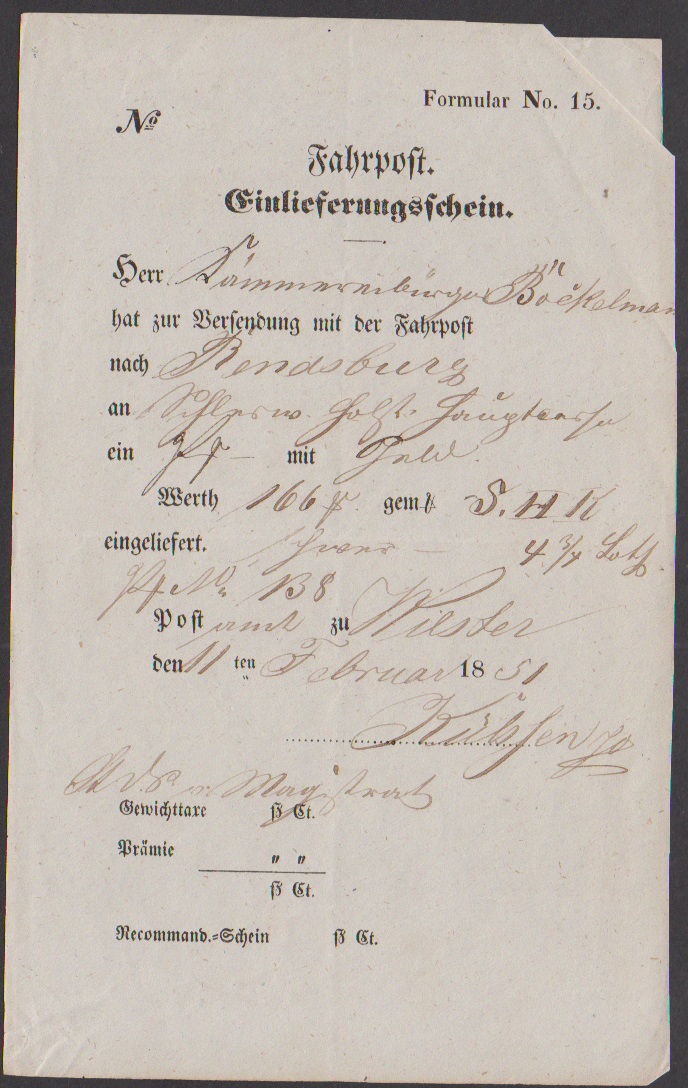 Formular No. 15.
No
Fahrpost.
Einlieferungsschein.
Herr Kämmereibürger Böckelman
hat zur Versendung mit der Fahrpost
nach Rendsburg
an Schlesw. Holst. Hauptcasse
ein mit Geld.
Werth 166 gem S. H K
eingeliefert. schwer — 4 3/4 Loth.
No 138
Postamt zu Wilster
den 11ten Februar 1851
Magistrat
Gewichttaxe ß Ct.
Prämie " "
ß Ct.
Recommand.-Schein ß Ct.